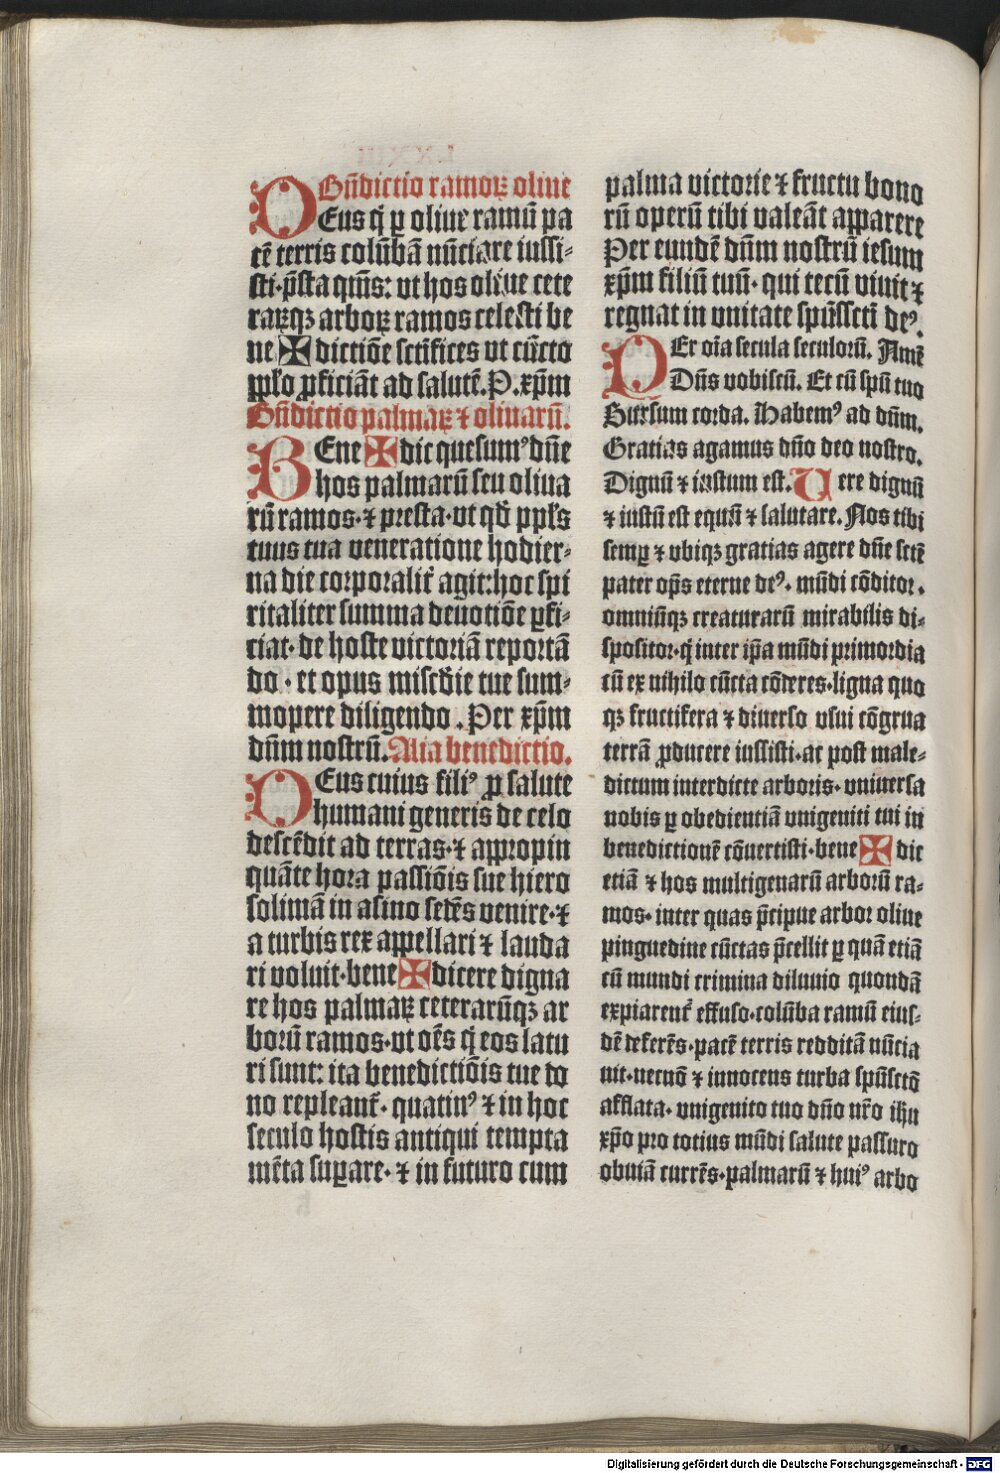 Bn̄dictio ramoꝝ oliue
DEus q̄ ꝑ oliue ramū pa
cē terris colūbā nūciare iussi⸗
sti·p̄sta qm̄s: vt hos oliue cete
raꝝqꝫ arboꝝ ramos celesti be
ne ✠ dictiōe sctīfices vt cūcto
ppl̓o ꝓficiāt ad salutē.P.xp̄m
Bn̄dictio palmaꝝ ⁊ oliuarū.
BEne ✠ dic quesumꝰ dn̄e
hos palmarū seu oliua
rū ramos·⁊ presta·vt qd̄ ppl̓s
tuus tua veneratione hodier⸗
na die corporalit̓ agit:hoc spi
ritaliter summa deuotiōe ꝑfi⸗
ciat·de hoste victoriā reportā
do·et opus misc̄die tue sum⸗
mopere diligendo.Per xp̄m
dn̄m nostrū.Alia benedictio.
DEus cuius filiꝰ ꝓ salute
humani generis de celo
descēdit ad terras·⁊ appropin
quāte hora passiōis sue hiero
solimā in asino sedēs venire·⁊
a turbis rex appellari ⁊ lauda
ri voluit·bene ✠ dicere digna
re hos palmaꝝ ceterarūqꝫ ar
borū ramos·vt oēs q̄ eos latu
ri sunt: ita benedictiōis tue do
no repleant̓·quatinꝰ ⁊ in hoc
seculo hostis antiqui tempta
mēta suꝑare·⁊ in futuro cum
palma victorie ⁊ fructu bono
rū operū tibi valeāt apparere
Per eundē dn̄m nostrū iesum
xp̄m filiū tuū·qui tecū viuit ⁊
regnat in vnitate spūssctī deꝰ.
PEr oīa secula seculorū. Amē
Dn̄s vobiscū. Et cū spū tuo
Sursum corda. Habemꝰ ad dn̄m.
Gratias agamus dn̄o deo nostro.
Dignū ⁊ iustum est.Uere dignū
⁊ iustū est equū ⁊ salutare. Nos tibi
semꝑ ⁊ vbiqꝫ gratias agere dn̄e sctē
pater op̄s eterne deꝰ·mūdi cōditor·
omniūqꝫ creaturarū mirabilis di⸗
spositor·q̄ inter ip̄a mūdi primordia
cū ex nihilo cūcta cōderes·ligna quo
qꝫ fructifera ⁊ diuerso vsui cōgrua
terrā ꝓducere iussisti·ac post male⸗
dictum interdicte arboris·vniuersa
nobis ꝑ obedientiā vnigeniti tui in
benedictionē cōuertisti·bene ✠ dic
etiā ⁊ hos multigenarū arborū ra⸗
mos·inter quas p̄cipue arbor oliue
pinguedine cūctas p̄cellit ꝑ quā etiā
cū mundi crimina diluuio quondā
expiarent̓ effuso·colūba ramū eius⸗
dē deferēs·pacē terris redditā nūcia
uit·necnō ⁊ innocens turba spūsctō
afflata·vnigenito tuo dn̄o nr̄o ih̄u
xp̄o pro totius mūdi salute passuro
obuiā currēs·palmarū ⁊ huiꝰ arbo
Digitalisierung gefördert durch die Deutsche Forschungsgemeinschaft - DFG